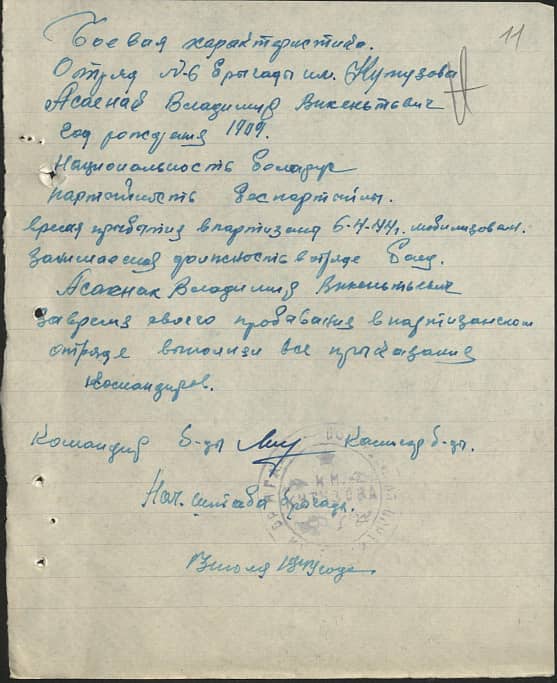 11
Боевая характеристика.
Отряд №6 Бригады им. Кутузова
Асаенак Владимир Викентьевич
год рождения 1909.
Национальность Беларус
партойность беспартойны.
время прибытия в партизаны 6-4-44 г. мобилизован.
Занимаемая должность в отряде Боец.
Асаенак Владимир Викентьевич
За время своего пребавания в партизанском
отряде выполнял все приказания
командиров.
Командир б-ды Комиссар б-ды.
Нач. штаба бригады.
БРИГА
ИМ.
КУТУЗОВА
июля 1944 года.